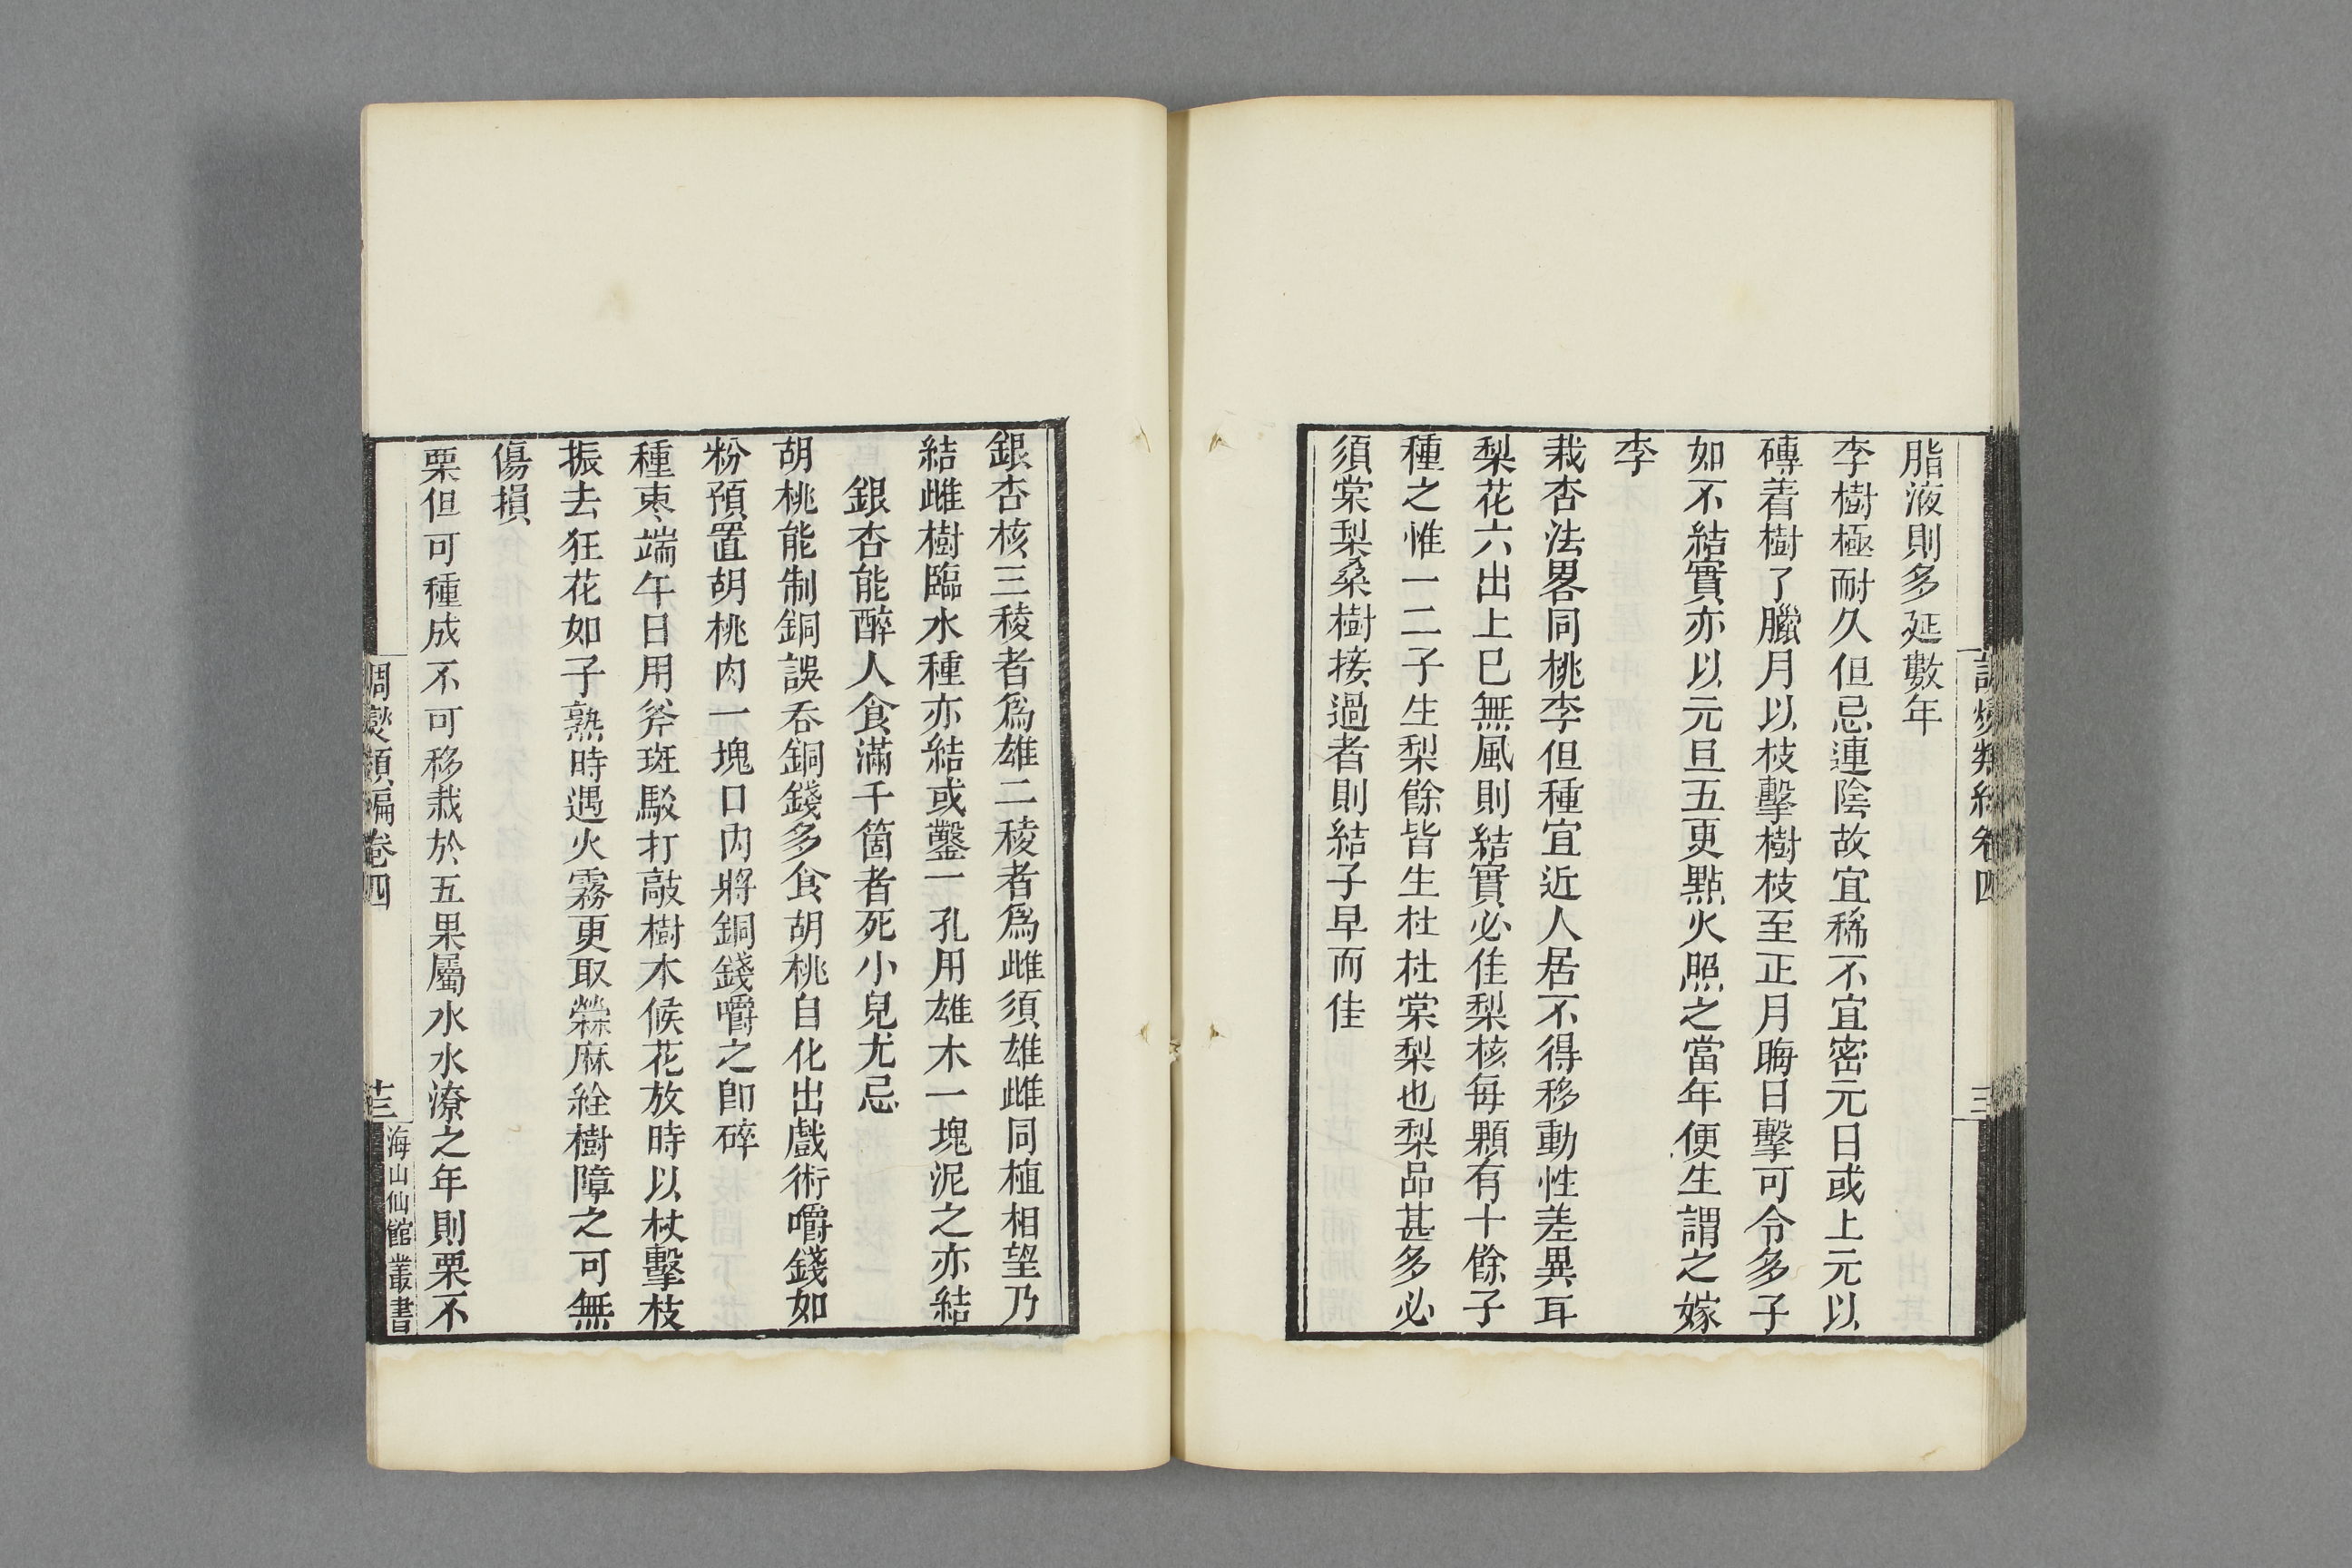 脂液則多延數年
李樹極耐久但忌連陰故宜稀不宜密元日或上元以
磚着樹了臘月以枝擊樹枝至正月晦日擊可令多子
如不結實亦以元旦五更點火照之當年便生謂之嫁
李
栽杏法畧同桃李但種宜近人居不得移動性差異耳
梨花六出上巳無風則結實必佳梨核每顆有十餘子
種之惟一二子生梨餘皆生杜杜棠梨也梨品甚多必
須棠梨桑樹接過者則結子早而佳
銀杏核三稜者爲雄二稜者爲雌須雄雌同植相望乃
結雌樹臨水種亦結或鑿一孔用雄木一塊泥之亦結
銀杏能醉人食滿千箇者死小兒尤忌
胡桃能制銅誤吞銅錢多食胡桃自化出戲術嚼錢如
粉預置胡桃肉一塊口內將銅錢嚼之卽碎
種棗端午日用斧斑駁打敲樹木候花放時以杖擊枝
振去狂花如子熟時遇火霧更取檾麻絟樹障之可無
傷損
栗但可種成不可移栽於五果屬水水潦之年則栗不
調燮類編卷四
十三
海山仙館叢書